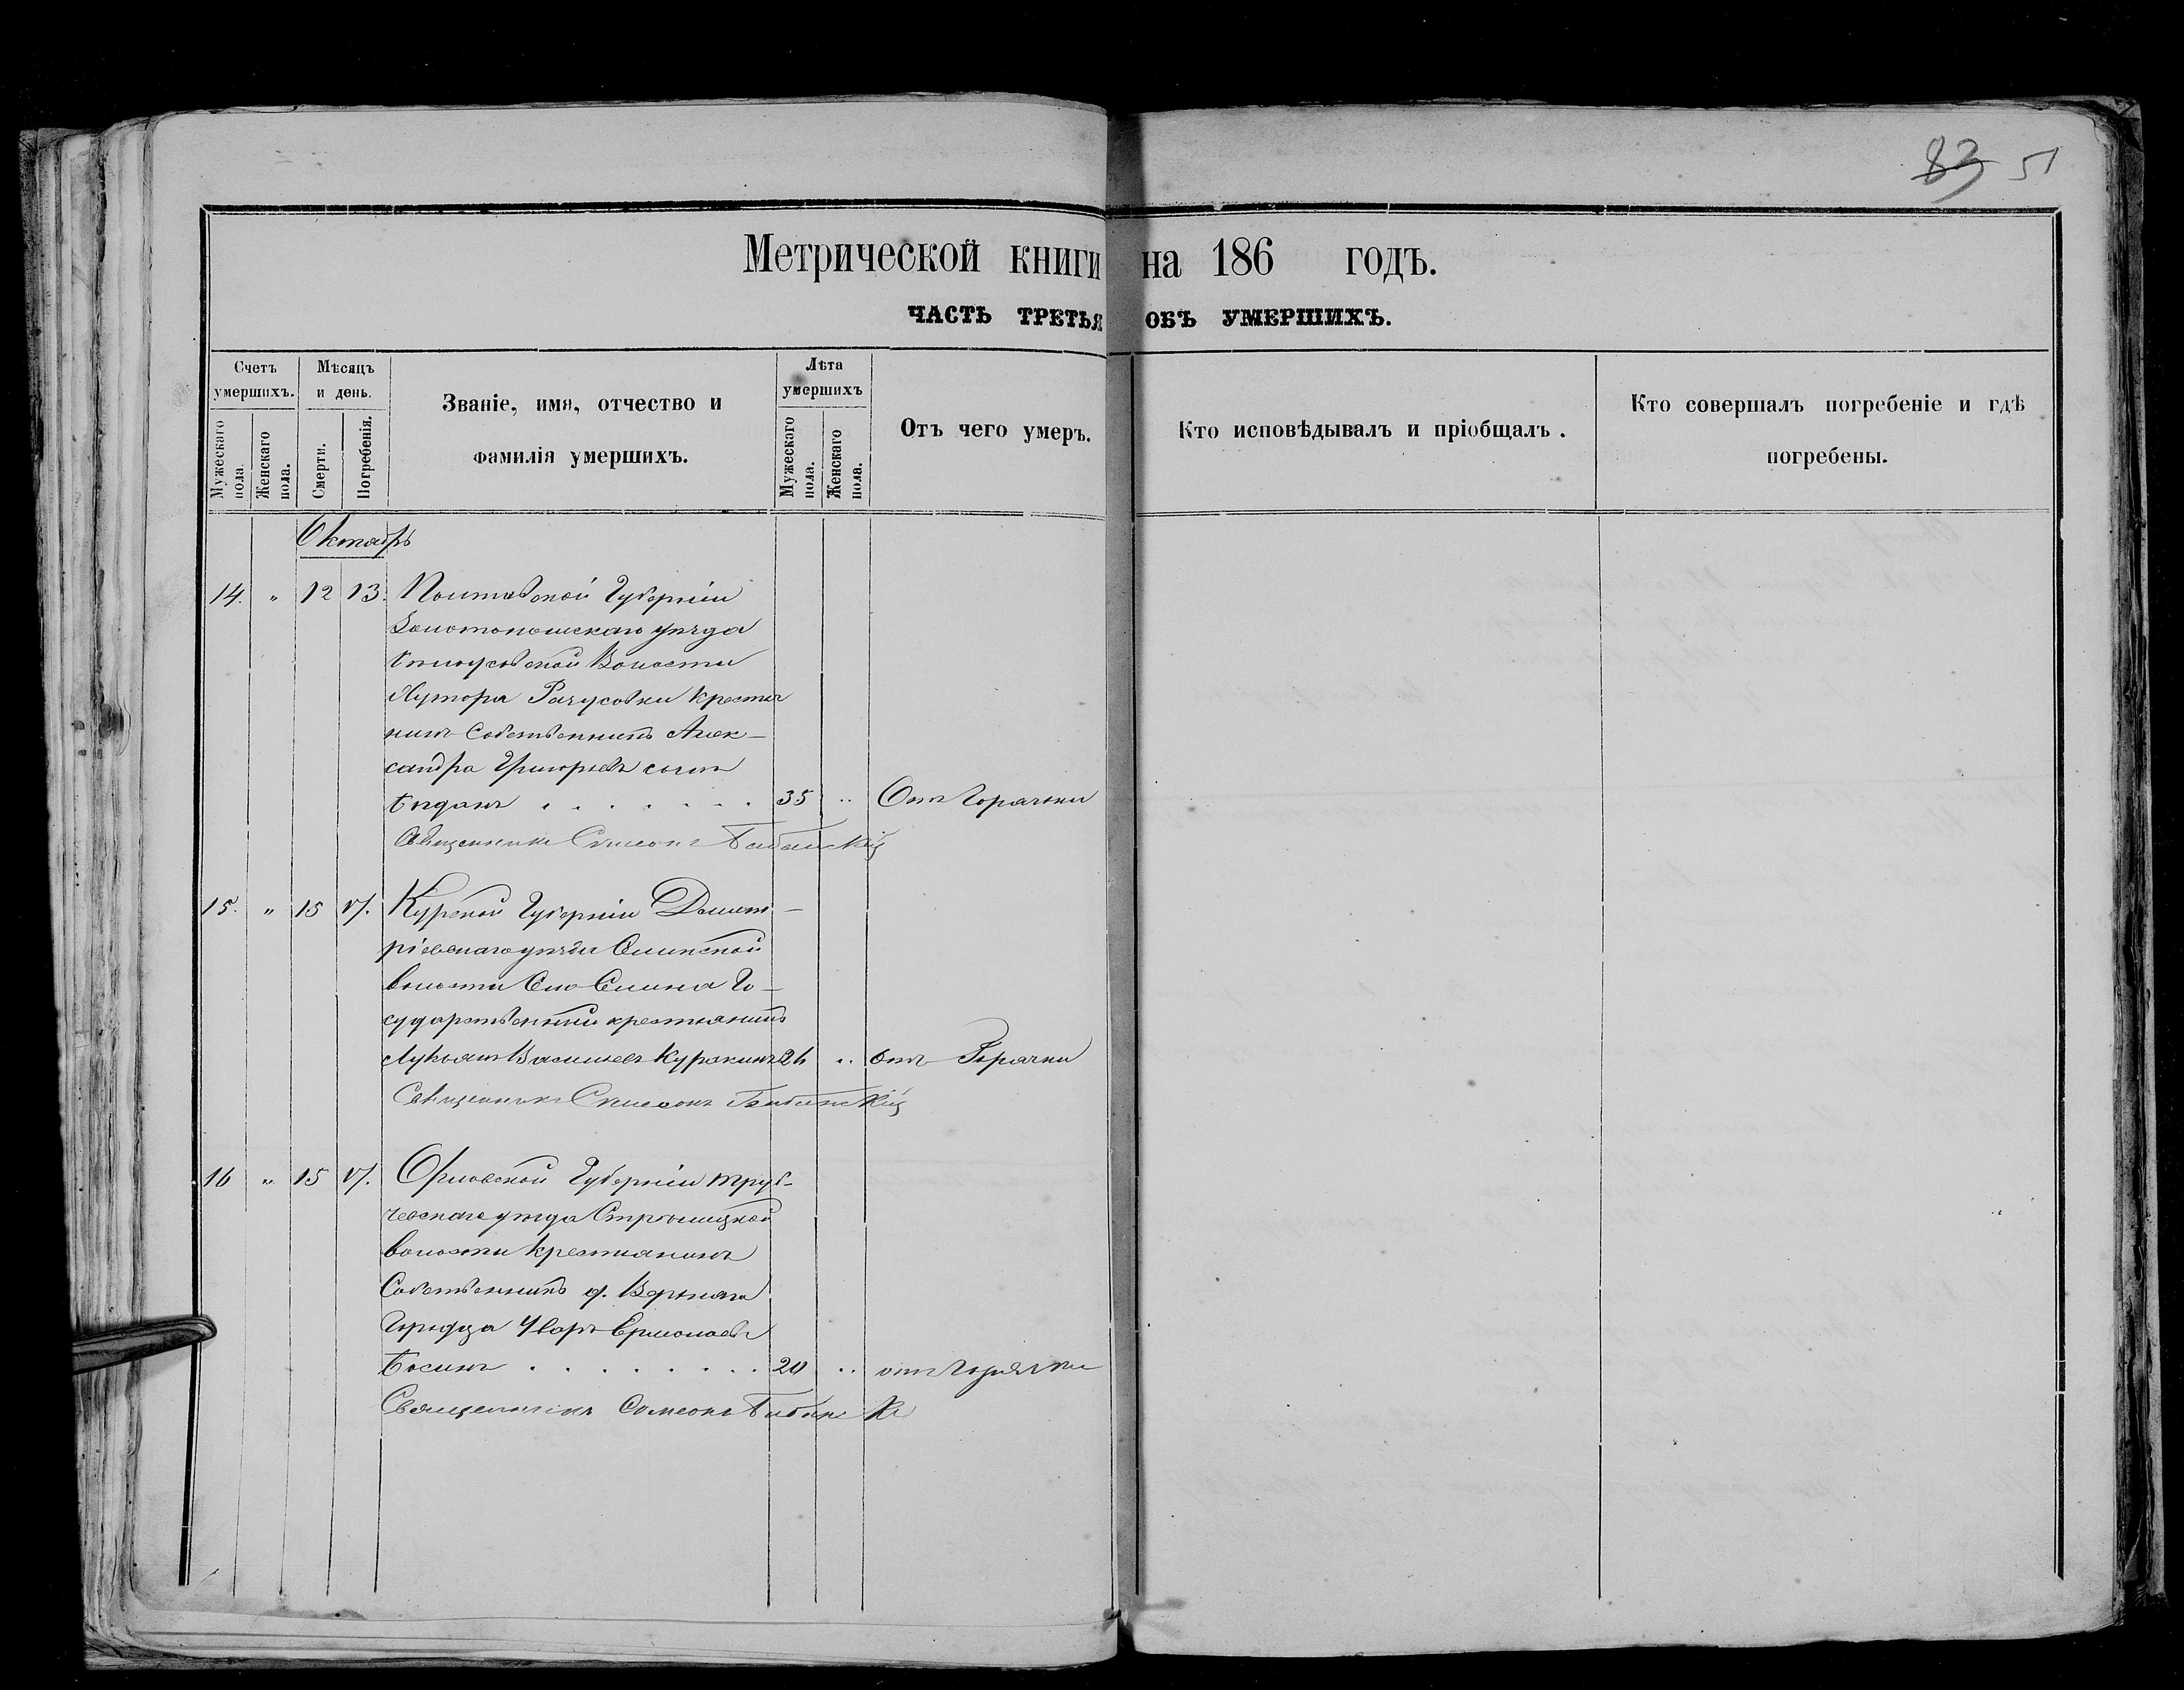 83 51
Метрической книги на 186 годъ.
ЧАСТЬ ТРЕТЬЯ ОБЪ УМЕРШИХЪ.
Счетъ умершихъ.
Мужескаго пола.
Женскаго пола.
Мѣсяцъ и день.
Смерти.
Погребенія.
Званіе, имя, отчество и
фамилія умершихъ.
Лѣта умершихъ
Мужескаго пола.
Женскаго пола.
Отъ чего умеръ.
Кто исповѣдывалъ и пріобщалъ.
Кто совершалъ погребеніе и гдѣ
погребены.
Октябрь
14. " 12 13. Полтавской Губерніи
Золотоношскаго уѣзда
Волости
Хутора Рачусовки Крестья
нинъ Собственникъ Алек-
сандра Григорьевъ сынъ
Богданъ . . . . . . . 35 .. Отъ Горячки
Священникъ Симеонъ
15. " 15 17. Курской Губерніи Дмит-
ріевскаго уѣзда
волости Села Го-
сударственный крестьянинъ
Лукьянъ Васильевъ Куракинъ 26 .. отъ Горячки
Священникъ Симеонъ
16 " 15 17. Орловской Губерніи труб-
чевскаго уѣзда
волости крестьянинъ
Собственникъ д.
Городца Уваръ Ермолаевъ
Босинъ . . . . . . . 20 .. отъ Горячки
Священникъ Симеонъ